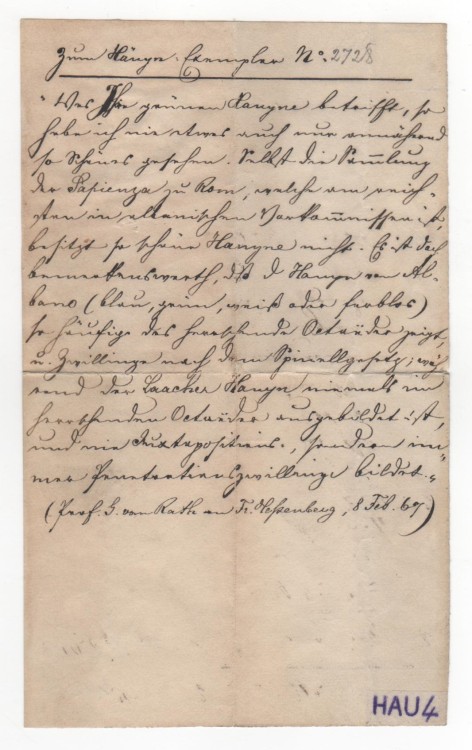 Zum Haüyn-Exemplar No. 2728
"Was Ihre grünen Hauyne betrifft, so
habe ich nie etwas auch nur annähernd
so Schönes gesehen. Selbst die Sammlung
der Sapienza zu Rom, welche am reich-
sten in albanischen Vorkommnissen ist,
besitzt so schöne Hauyne nicht. Es ist doch
bemerkenswerth, daß d Hauyn von Al-
bano (blau, grün, weiß oder farblos)
so häufig das herrschende Octaëder zeigt,
u. Zwillinge nach dem Spinellgesetz; wäh
rend der Laacher Hauyn niemals im
herrschenden Octaëder ausgebildet ist,
und nie Juxtapositions-, sondern im-
mer Penetrationszwillinge bildet."
(Prof. G. vom Rath an Fr. Hessenberg, 8 Feb. 67.)
HAU4